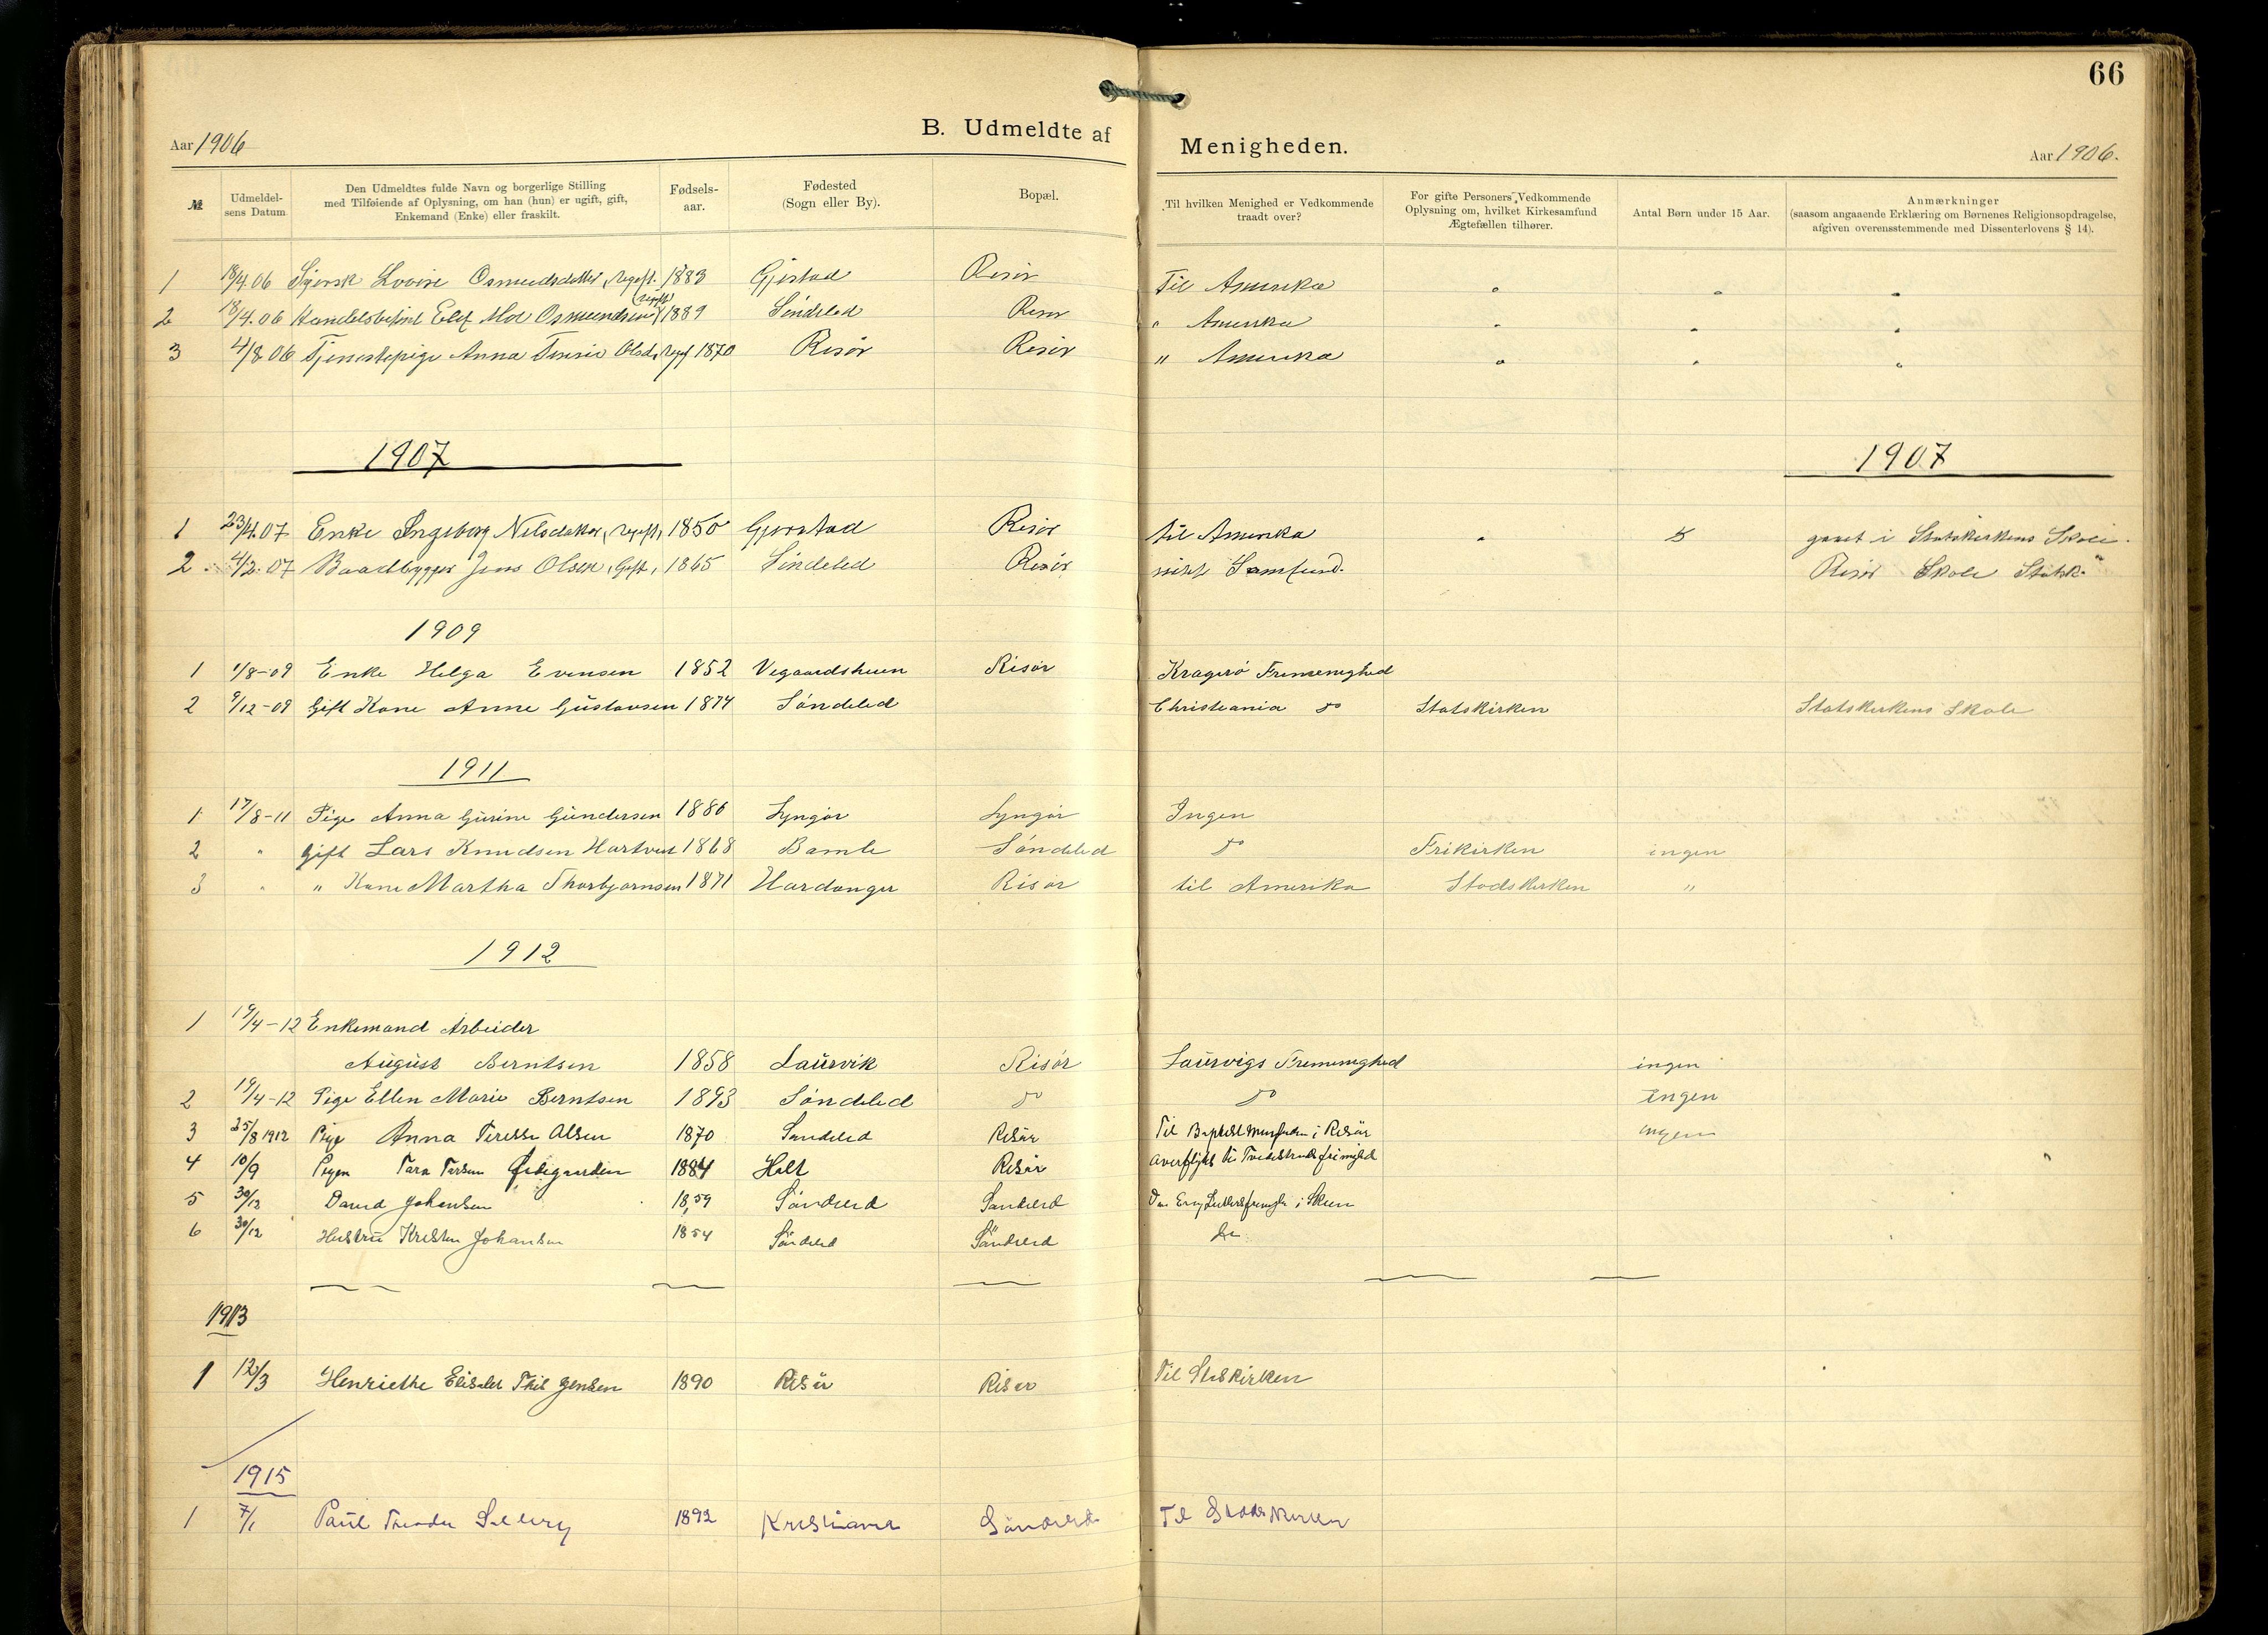 66
B. Udmeldte af Menigheden.
Aar 1906
Aar 1906.
№
Udmeldelsens Datum
Den Udmeldtes fulde Navn og borgerlige Stilling
med Tilføiende af Oplysning, om han (hun) er ugift, gift,
Enkemand (Enke) eller fraskilt.
Fødselsaar.
Fødested
(Sogn eller By).
Bopæl.
Til hvilken Menighed er Vedkommende
traadt over?
For gifte Personers Vedkommende
Oplysning om, hvilket Kirkesamfund
Ægtefællen tilhører.
Antal Børn under 15 Aar.
Anmærkninger
(saasom angaaende Erklæring om Børnenes Religionsopdragelse,
afgiven overensstemmende med Dissenterlovens § 14).
1 18/4.06 Lovise Osmundsdatter, 1883 Gjestad Risør Til Amerika
2 18/4.06 Osmundsen 1889 Søndeled Risør " Amerika
3 4/8.06 Tjenestepige Anna Olsd, 1870 Risør Risør " Amerika
1907 1907
1 23/4.07 Enke Ingeborg Nilsdatter, 1850 Gjerstad Risør til Amerika 5 i Statskirkens Skole.
2 4/2.07 Baadbygger Jens Olsen, Gift, 1865 Søndeled Risør Samfund. Risør Skole Statsk.
1909
1 1/8-09 Enke Helga Evensen 1852 Vegaardsheien Risør Kragerø Frimenighed
2 9/12-09 Gift Kone Anne Gustavsen 1874 Søndeled Christiania do Statskirken Statskirkens Skole
1911
1 17/8-11 Pige Anna Gurine Gundersen 1886 Lyngør Lyngør Ingen
2 " Gift Lars Knudsen 1868 Bamle Søndeled do Frikirken ingen
3 " " Kone Martha Thorbjørnsen 1871 Hardanger Risør til Amerika Stadskirken "
1912
1 19/4-12 Enkemand Arbeider
August Berntsen 1858 Laurvik Risør Laurvigs Frimenighed ingen
2 19/4-12 Pige Ellen Marie Berntsen 1893 Søndeled do do Ingen
3 25/8 1912 Pige Anna Teresse Olsen 1870 Søndeled Risør Til i Risør ingen
4 10/9 Pigen Tara Ødegaarden 1884 Holt Risør
5 30/12 David Johansen 1859 Søndeled Søndeled i Skien
6 30/12 Hustru Kristen Johansen 1854 Søndeled Søndeled do
1913
1 12/3 Henriethe Elisabet Jensen 1890 Risør Risør Til Statskirken
1915
1 7/1 Paul 1892 Kristiania Søndeled Til Stadskirken